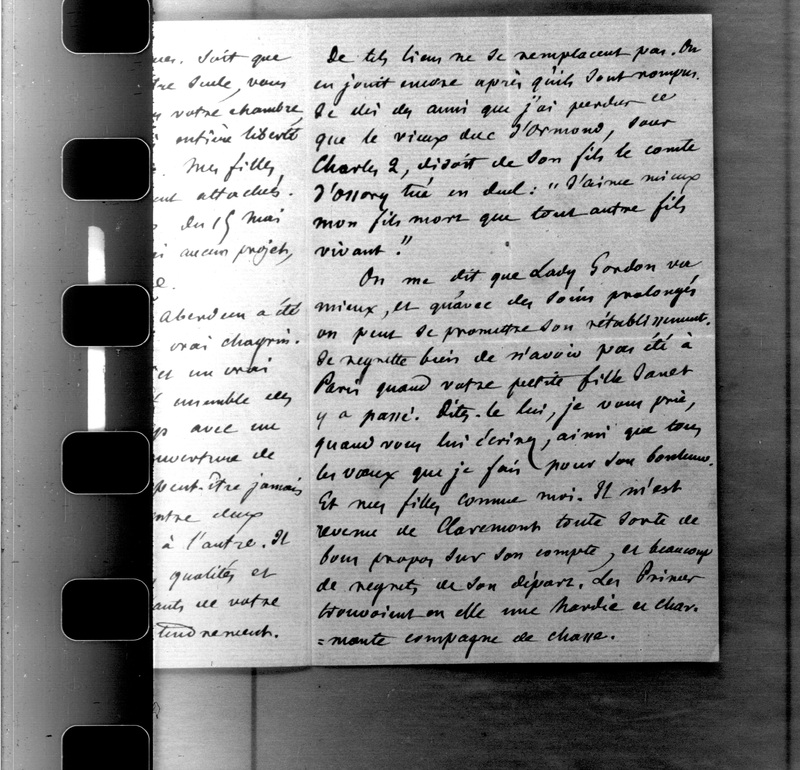 mes. Soit que
tre seule, vous
votre chambre,
entière liberté
. Mes filles,
ent attachés.
du 15 mai
i aucun projet,
e.
Aberdeen a été
vrai chagrin.
et un vrai
ensemble des
avec un
ouverture de
peut-être jamais
entre deux
à l'autre. Il
, qualités et
ants de votre
tendrement.
De tels liens ne se remplacent pas. On
en jouit encore après qu'ils sont rompus.
Je dis des amis que j'ai perdus ce
que le vieux duc d'Ormond, sous
Charles 2, disoit de son fils le comte
d'Ossory tué en duel : "J'aime mieux
mon fils mort que tout autre fils
vivant."
On me dit que Lady Gordon va
mieux, et qu'avec des soins prolongés
on peut se promettre son rétablissement.
Je regrette bien de n'avoir pas été à
Paris quand votre petite fille Janet
y a passé. Dites-le lui, je vous prie,
quand vous lui écrirez, ainsi que tous
les vœux que je fais pour son bonheur.
Et mes filles comme moi. Il m'est
revenu de Claremont toute sorte de
bons propos sur son compte, et beaucoup
de regrets de son départ. Les Princes
trouvoient en elle une hardie et char-
=mante compagne de chasse.